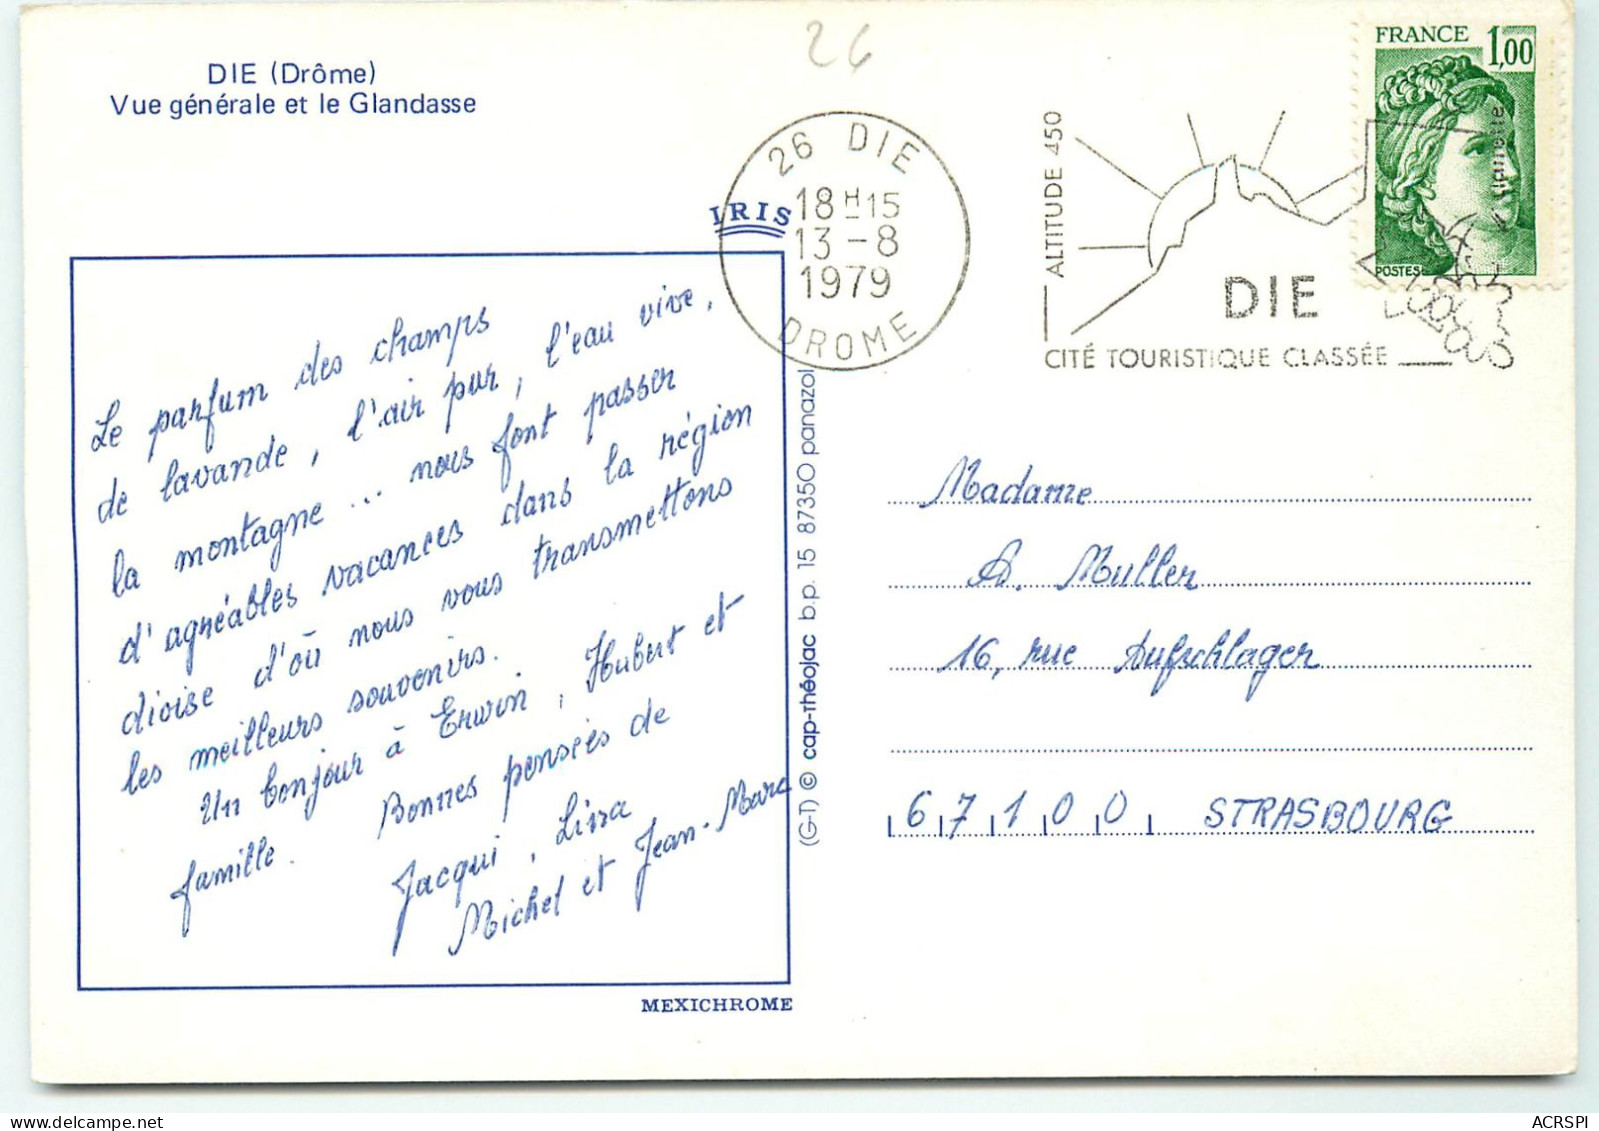 26
DIE (Drôme)
Vue générale et le Glandasse
IRIS
26 DIE
18H15
13-8
1979
DROME
ALTITUDE 450
DIE
CITÉ TOURISTIQUE CLASSÉE
clairette
FRANCE 1,00
POSTES
Le parfum des champs
de lavande, l'air pur, l'eau vive,
la montagne... nous font passer
d'agréables vacances dans la région
dioise d'où nous vous transmettons
les meilleurs souvenirs.
Un bonjour à Erwin, Hubert et
famille. Bonnes pensées de
Jacqui, Lina
Michel et Jean-Marc
MEXICHROME
(G-1) © cap-théojac b.p. 15 87350 panazol
Madame
A. Muller
16, rue Aufschlager
67100 STRASBOURG
ACRSPI